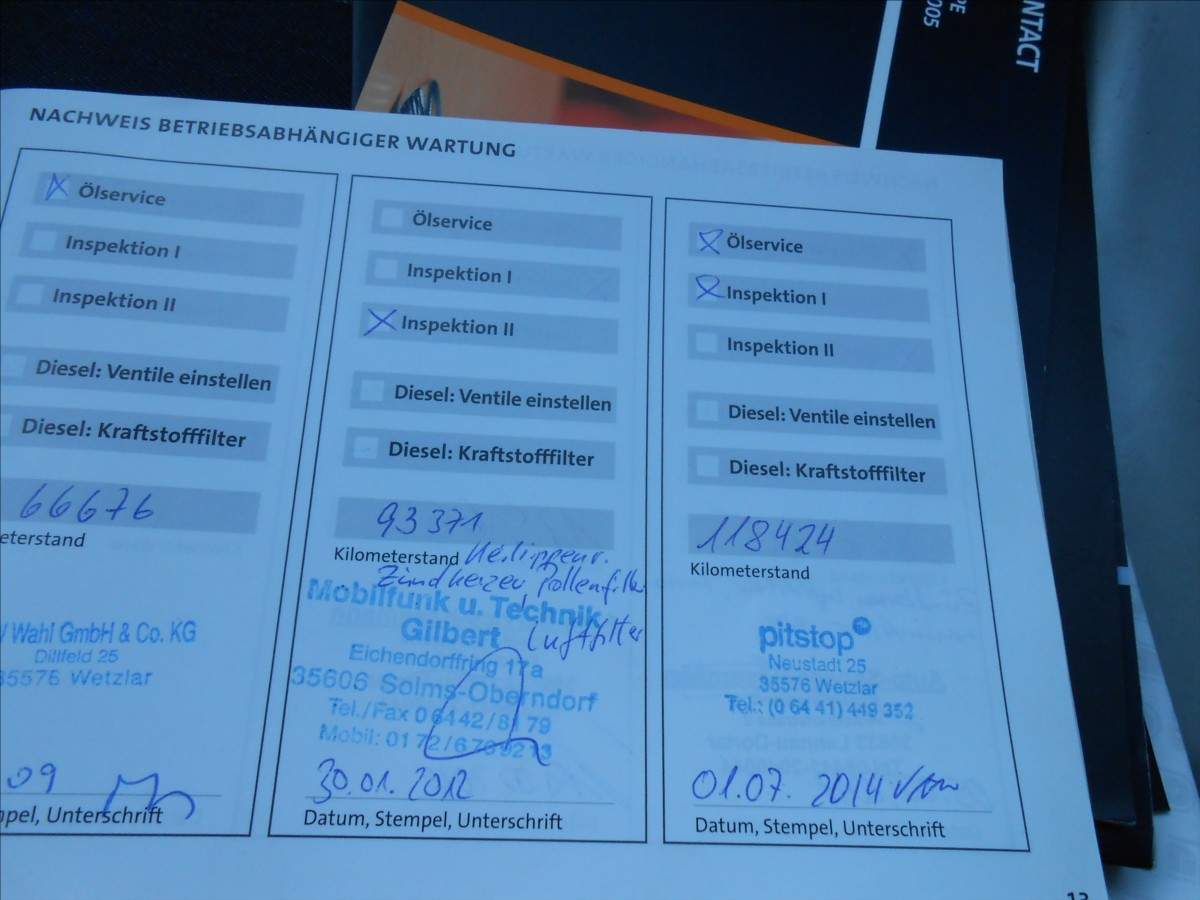 NTACT
005
NACHWEIS BETRIEBSABHÄNGIGER WARTUNG
Ölservice
Inspektion I
Inspektion II
Diesel: Ventile einstellen
Diesel: Kraftstofffilter
66676
eterstand
Wahl GmbH & Co. KG
Dillfeld 25
35576 Wetzlar
09
pel, Unterschrift
Ölservice
Inspektion I
Inspektion II
Diesel: Ventile einstellen
Diesel: Kraftstofffilter
93371
Kilometerstand
Zündkerzen Pollenfilter
Mobilfunk u. Technik
Gilbert Luftfilter
Eichendorffring 17a
35606 Solms-Oberndorf
Tel./Fax 0 6442/8179
Mobil: 0172/
30.01.2012
Datum, Stempel, Unterschrift
Ölservice
Inspektion I
Inspektion II
Diesel: Ventile einstellen
Diesel: Kraftstofffilter
118424
Kilometerstand
pitstop
Neustadt 25
35576 Wetzlar
Tel.: (0 64 41) 449 352
01.07. 2014
Datum, Stempel, Unterschrift